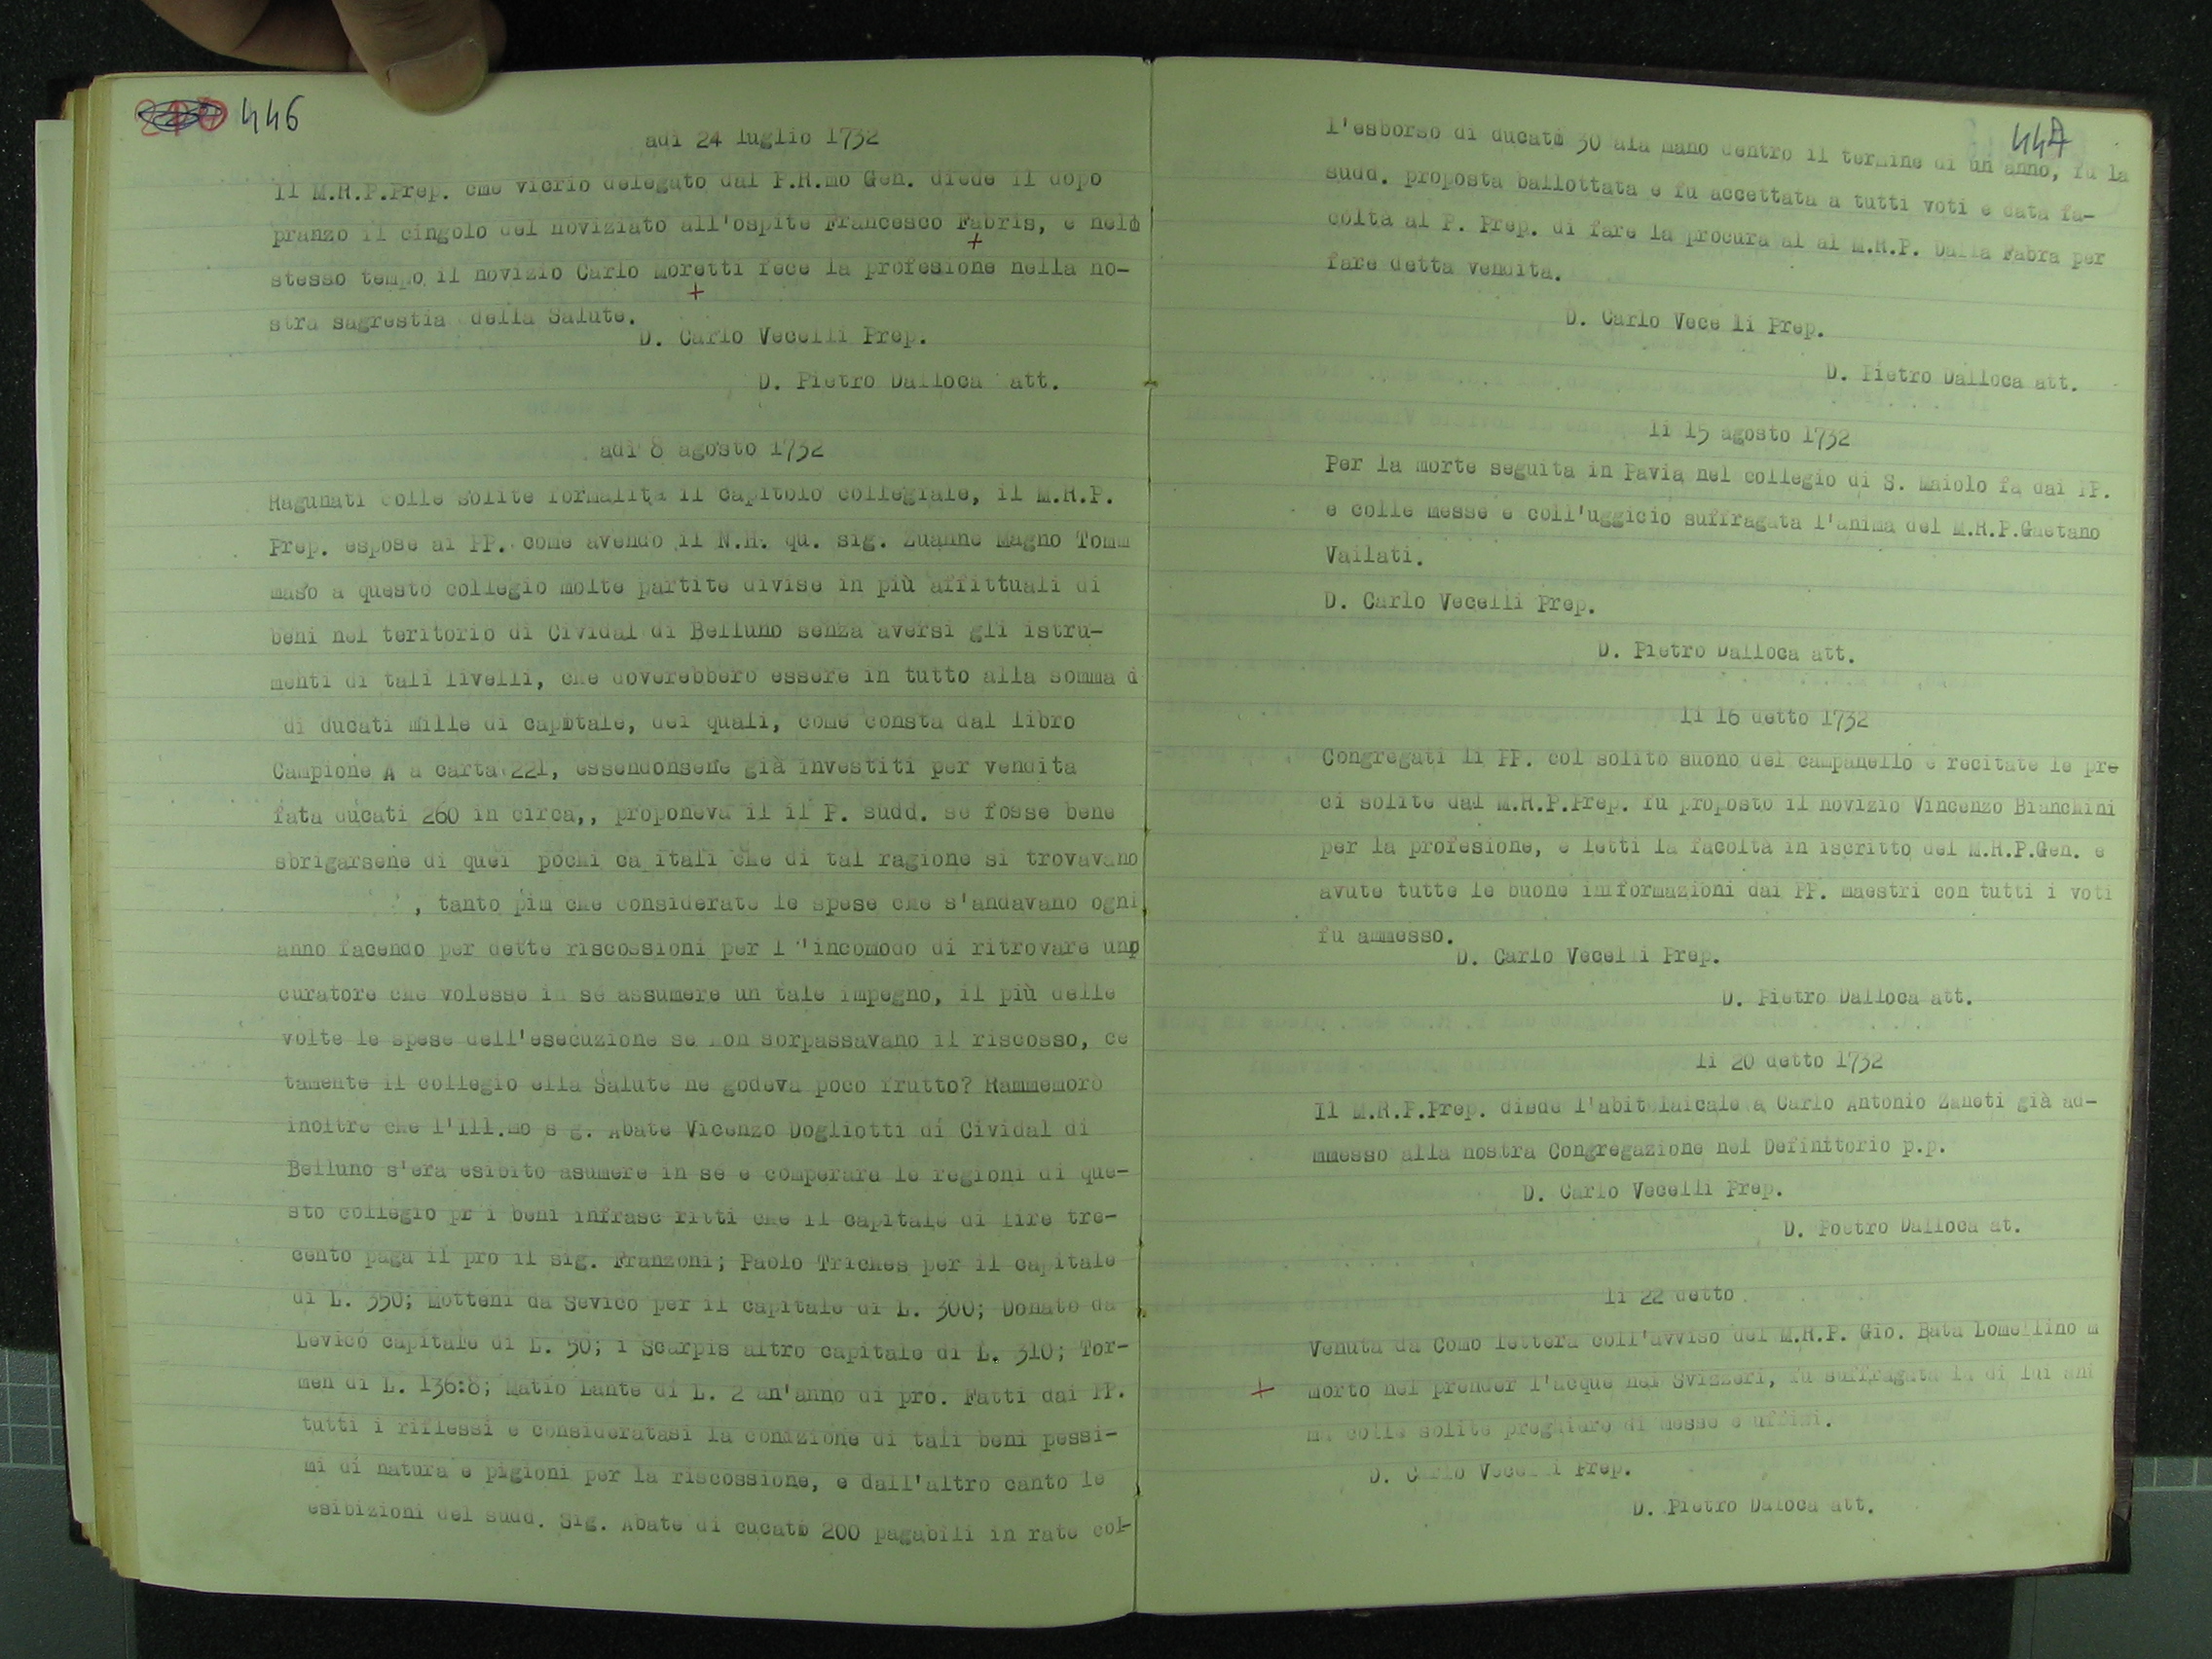 446
adi 24 luglio 1732
Il M.R.P.Prep. cme vicrio delegato dal P.R.mo Gen. diede il dopo
pranzo il cingolo del noviziato all'ospite Francesco Fabris, e nelo
stesso tempo il novizio Carlo Moretti fece la profesione nella no-
stra sagrestia della Salute.
D. Carlo Vecelli Prep.
D. Pietro Dalloca att.
adi 8 agosto 1732
Ragunati colle solite formalita il capitolo collegiale, il M.R.P.
Prep. espose ai PP. come avendo il N.H. qu. sig. Zuanne Magno Tomm
maso a questo collegio molte partite divise in più affittuali di
beni nel teritorio di Cividal di Belluno senza aversi gli istru-
menti di tali livelli, che doverebbero essere in tutto alla somma d
di ducati mille di capitale, dei quali, come consta dal libro
Campione A a carta 221, essendonsene già investiti per vendita
fata ducati 260 in circa,, proponeva il il P. sudd. se fosse bene
sbrigarsene di quei pochi ca itali che di tal ragione si trovavano
, tanto pim che considerate le spese che s'andavano ogni
anno facendo per dette riscossioni per l "incomodo di ritrovare unp
curatore che volesse in se assumere un tale impegno, il più delle
volte le spese dell'esecuzione se non sorpassavano il riscosso, ce
tamente il collegio ella Salute ne godeva poco frutto? Rammemorò
inoltre che l'Ill.mo s g. Abate Vicenzo Dogliotti di Cividal di
Belluno s'era esibito asumere in se e comperare le regioni di que-
sto collegio pr i beni infrasc ritti che il capitale di lire tre-
cento paga il pro il sig. Franzoni; Paolo Triches per il capitale
di L. 350; Motteni da Sevico per il capitale di L. 300; Donato da
Levico capitale di L. 50; i Scarpis altro capitale di L. 310; Tor-
men di L. 136:8; Matio Lante di L. 2 an'anno di pro. Fatti dai PP.
tutti i riflessi e consideratasi la condizione di tali beni pessi-
mi di natura e pigioni per la riscossione, e dall'altro canto le
esibizioni del sudd. Sig. Abate di cucati 200 pagabili in rate col-
447
l'esborso di ducati 30 ala mano dentro il termine di un anno, fu la
sudd. proposta ballottata e fu accettata a tutti voti e data fa-
coltà al P. Prep. di fare la procura al al M.R.P. Dalla Fabra per
fare detta vendita.
D. Carlo Vece li Prep.
D. Pietro Dalloca att.
li 15 agosto 1732
Per la morte seguita in Pavia nel collegio di S. Maiolo fa dai PP.
e colle messe e coll'uggicio suffragata l'anima del M.R.P.Gaetano
Vailati.
D. Carlo Vecelli Prep.
D. Pietro Dalloca att.
li 16 detto 1732
Congregati li PP. col solito suono del campanello e recitate le pre
ci solite dal M.R.P.Prep. fu proposto il novizio Vincenzo Bianchini
per la profesione, e letti la facoltà in iscritto del M.R.P.Gen. e
avute tutte le buone imformazioni dai PP. maestri con tutti i voti
fu ammesso.
D. Carlo Vecelli Prep.
D. Pietro Dalloca att.
li 20 detto 1732
Il M.R.P.Prep. diede l'abito laicale a Carlo Antonio Zaneti già ad-
mmesso alla nostra Congregazione nel Definitorio p.p.
D. Carlo Vecelli Prep.
D. Poetro Dalloca at.
li 22 detto
Venuta da Como lettera coll'avviso del M.R.P. Gio. Bata Lomellino m
morto nel prender l'acque nei Svizzeri, fu suffragata la di lui ani
ma colle solite preghiaro di messe e uffini.
D. Carlo Vecelli Prep.
D. Pietro Daloca att.